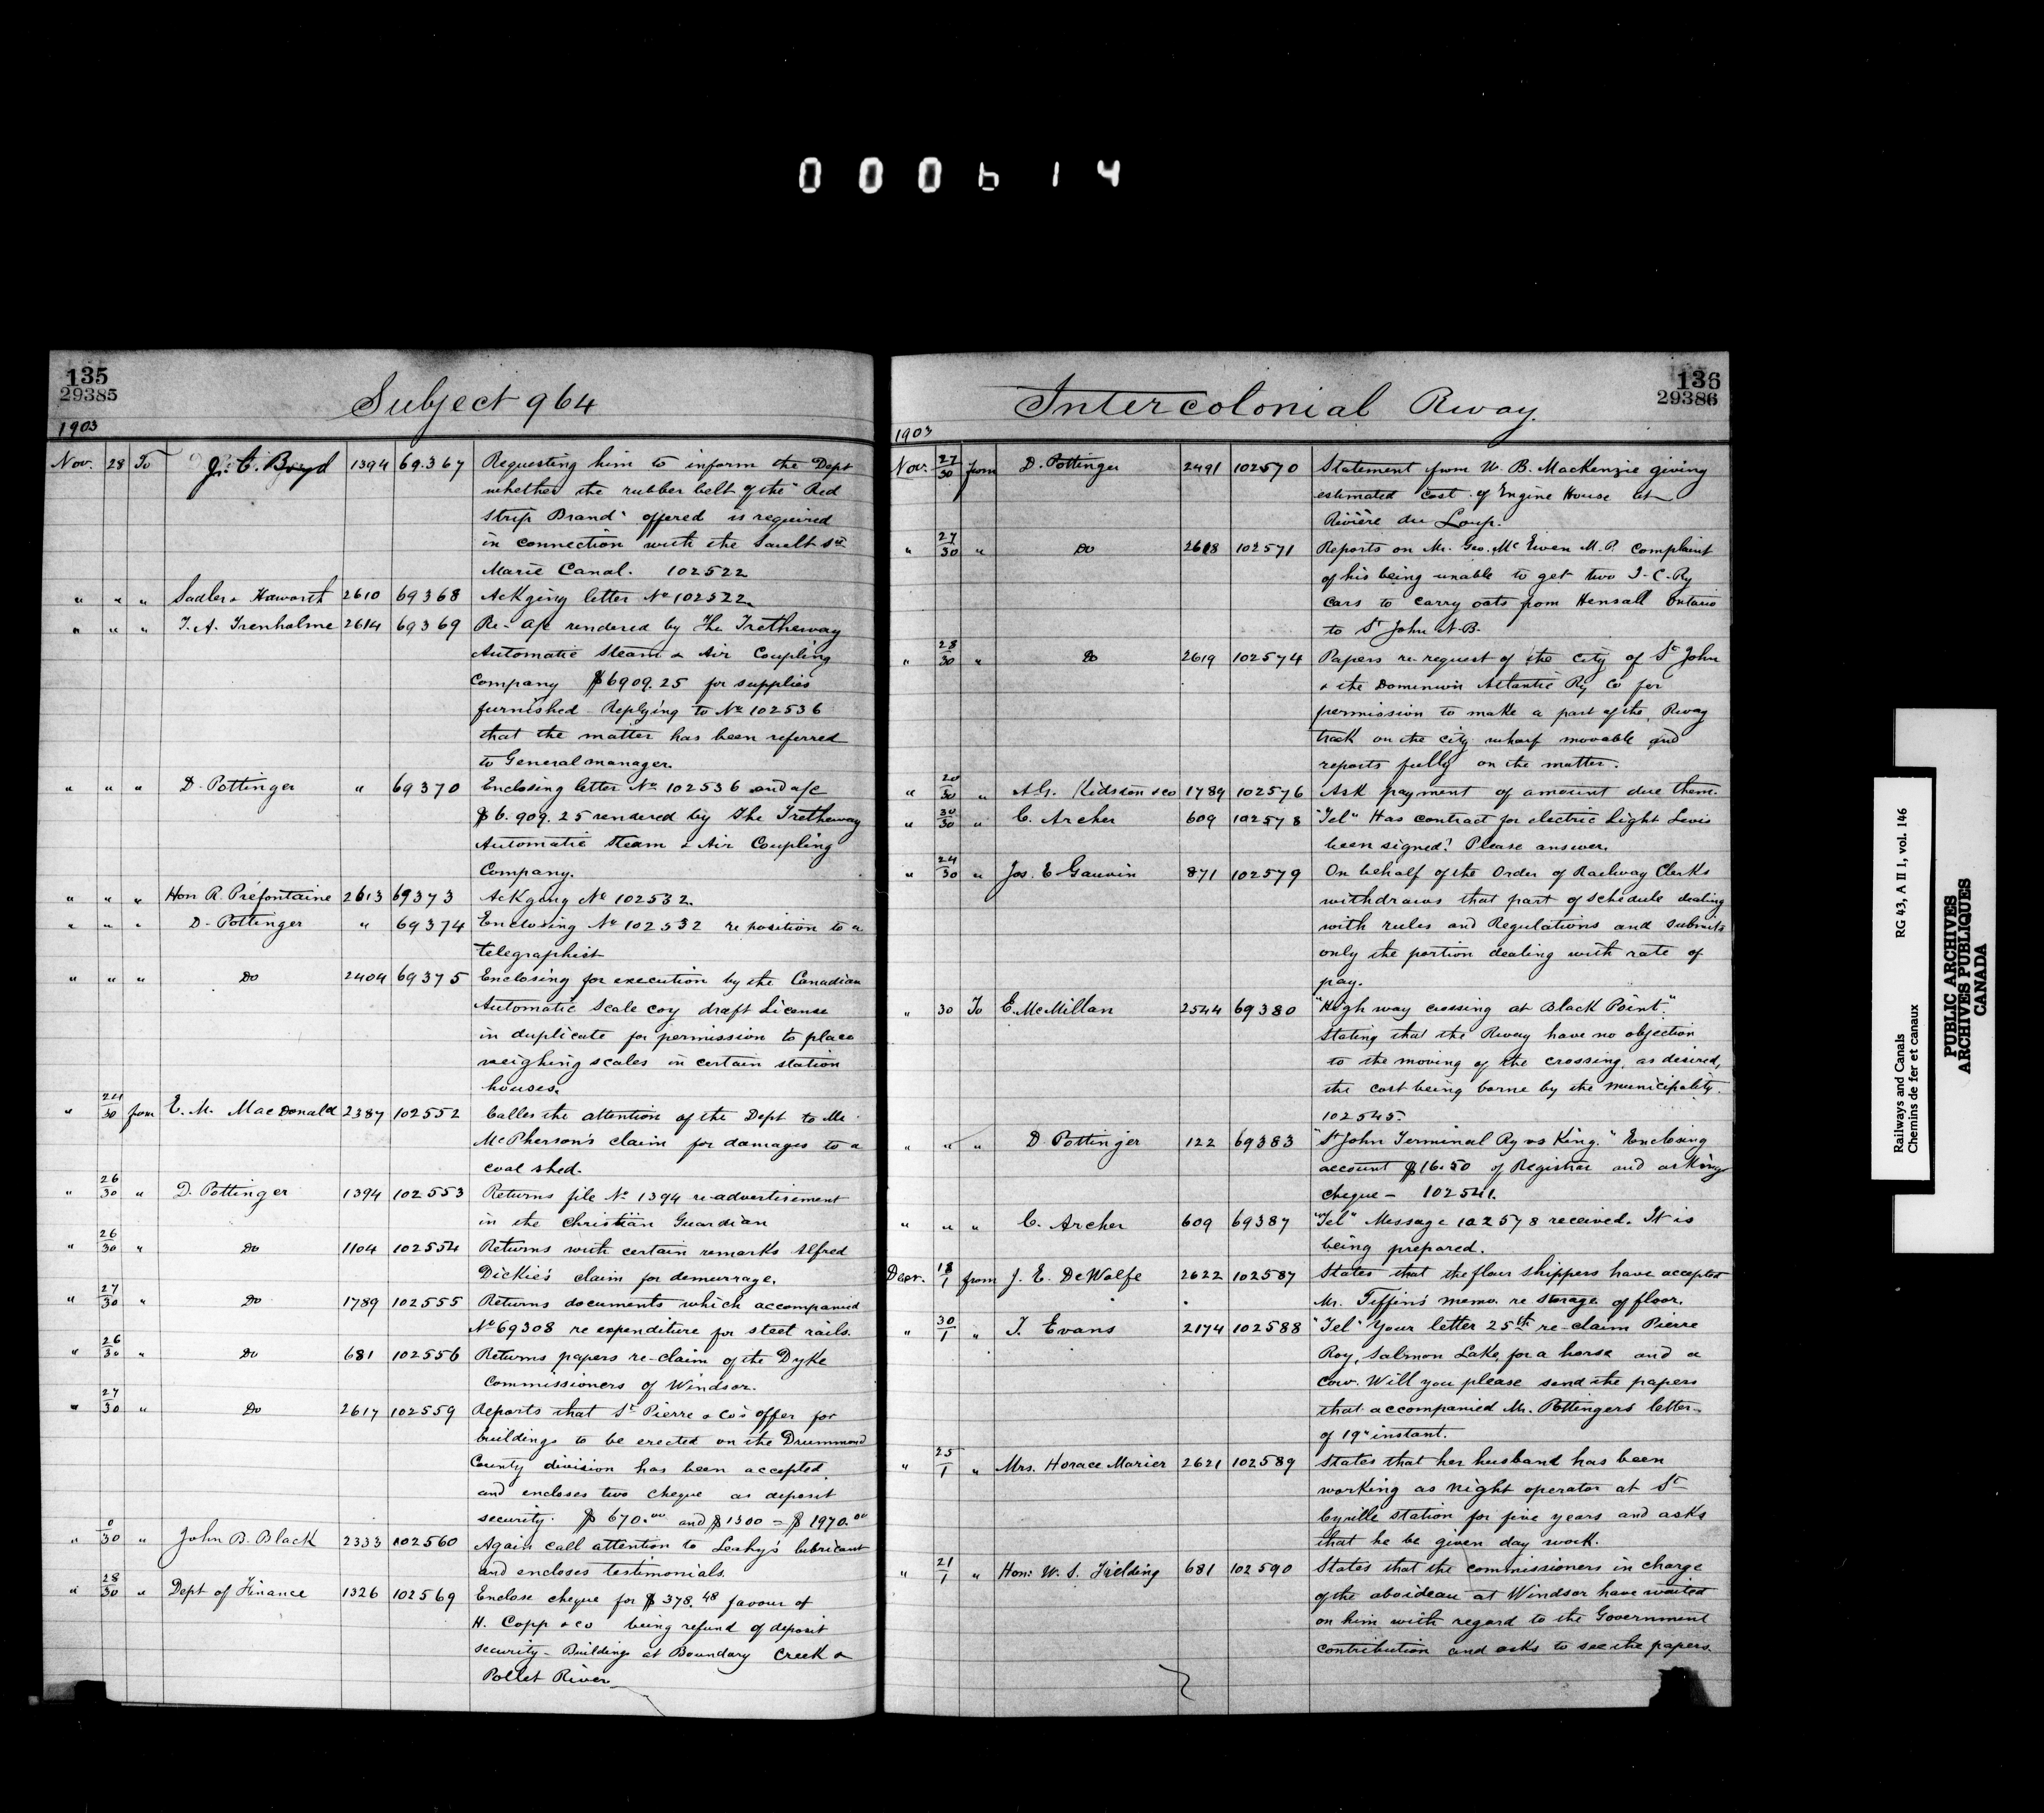 000614
135
29385
Subject 964
1903
Nov. 28 To J. C. Boyd 1394 69.367 Requesting him to inform the Dept
whether the rubber belt of the "Red
Strip Brand" offered is required
in connection with the Sault Ste
Marie Canal. 102522
" " " Sadler & Haworth 2610 69368 Ackging letter No 102522.
" " " T. A. Trenholme 2614 69369 Re- a/c rendered by The Tretheway
Automatic Steam & Air Coupling
Company $6909.25 for supplies
furnished - Replying to No 102536
that the matter has been referred
to General manager.
" " " D. Pottinger " 69370 Enclosing letter No 102536 and a/c
$6.909.25 rendered by The Tretheway
Automatic Steam & Air Coupling
Company.
" " " Hon R. Préfontaine 2613 69373 Ackging No 102532.
" " " D. Pottinger " 69374 Enclosing No 102532 re position to a
telegraphist
" " " Do 2404 69375 Enclosing for execution by the Canadian
Automatic Scale coy draft License
in duplicate for permission to place
weighing scales in certain station
houses.
" 24/30 from E. M. MacDonald 2387 102552 Calls the attention of the Dept to Mr
McPherson's claim for damages to a
coal shed.
" 26/30 " D. Pottinger 1394 102553 Returns file No 1394 re-advertisement
in the Christian Guardian
" 26/30 " Do 1104 102554 Returns with certain remarks Alfred
Dickie's claim for demurrage.
" 27/30 " Do 1789 102555 Returns documents which accompanied
No 69308 re expenditure for steel rails.
" 26/30 " Do 681 102556 Returns papers re-claim of the Dyke
Commissioners of Windsor.
" 27/30 " Do 2617 102559 Reports that St Pierre & Co's offer for
buildings to be erected on the Drummond
County division has been accepted
and encloses two cheque as deposit
security. $670.00 and $1300 = $1970.00
" 0/30 " John B. Black 2333 102560 Again call attention to Leahy's lubricant
and encloses testimonials.
" 28/30 " Dept of Finance 1326 102569 Enclose cheque for $378.48 favour of
H. Copp & co being refund of deposit
security - Buildings at Boundary Creek &
Pollet River
136
29386
Intercolonial Rway.
1903
Nov. 27/30 from D. Pottinger 2491 102570 Statement from W. B. MacKenzie giving
estimated cost of Engine House at
Rivière du Loup.
" 27/30 " Do 2618 102571 Reports on Mr. Geo. McEwen M.P. complaint
of his being unable to get two I-C-Ry
cars to carry oats from Hensall Ontario
to St John N.B.
" 28/30 " Do 2619 102574 Papers re request of the city of St John
& the Dominion Atlantic Ry Co for
permission to make a part of the Rway
track on the city wharf movable and
reports fully on the matter.
" 20/30 " A.G. Kidston & co 1789 102576 Ask payment of amount due them.
" 30/30 " C. Archer 609 102578 "Tel" Has contract for electric light Levis
been signed? Please answer.
" 24/30 " Jos. E Gauvin 871 102579 On behalf of the Order of Railway Clerks
withdraws that part of schedule dealing
with rules and Regulations and submits
only the portion dealing with rate of
pay.
" 30 To E. McMillan 2544 69380 "High way crossing at Black Point"
Stating that the Rway have no objection
to the moving of the crossing, as desired,
the cost being borne by the municipality.
102545.
" " " D Pottinger 122 69383 "St John Terminal Ry vs King." Enclosing
account $16.50 of Registrar and asking
cheque - 102541.
" " " C. Archer 609 69387 "Tel" Message 102578 received. It is
being prepared.
Decr. 18/1 from J. E. DeWolfe 2622 102587 States that the flour shippers have accepted
Mr. Tiffin's memo. re storage of floor.
" 30/1 " T. Evans 2174 102588 "Tel" Your letter 25th re-claim Pierre
Roy, Salmon Lake, for a horse and a
cow. Will you please send the papers
that accompanied Mr. Pottingers letter
of 19" instant.
" 25/1 " Mrs. Horace Marier 2621 102589 States that her husband has been
working as night operator at St
Cyrille station for five years and asks
that he be given day work.
" 21/1 " Hon: W. S. Fielding 681 102590 States that the commissioners in charge
of the aboideau at Windsor have waited
on him with regard to the Government
contribution and asks to see the papers.
Railways and Canals RG 43, A II 1, vol. 146
Chemins de fer et canaux
PUBLIC ARCHIVES
ARCHIVES PUBLIQUES
CANADA